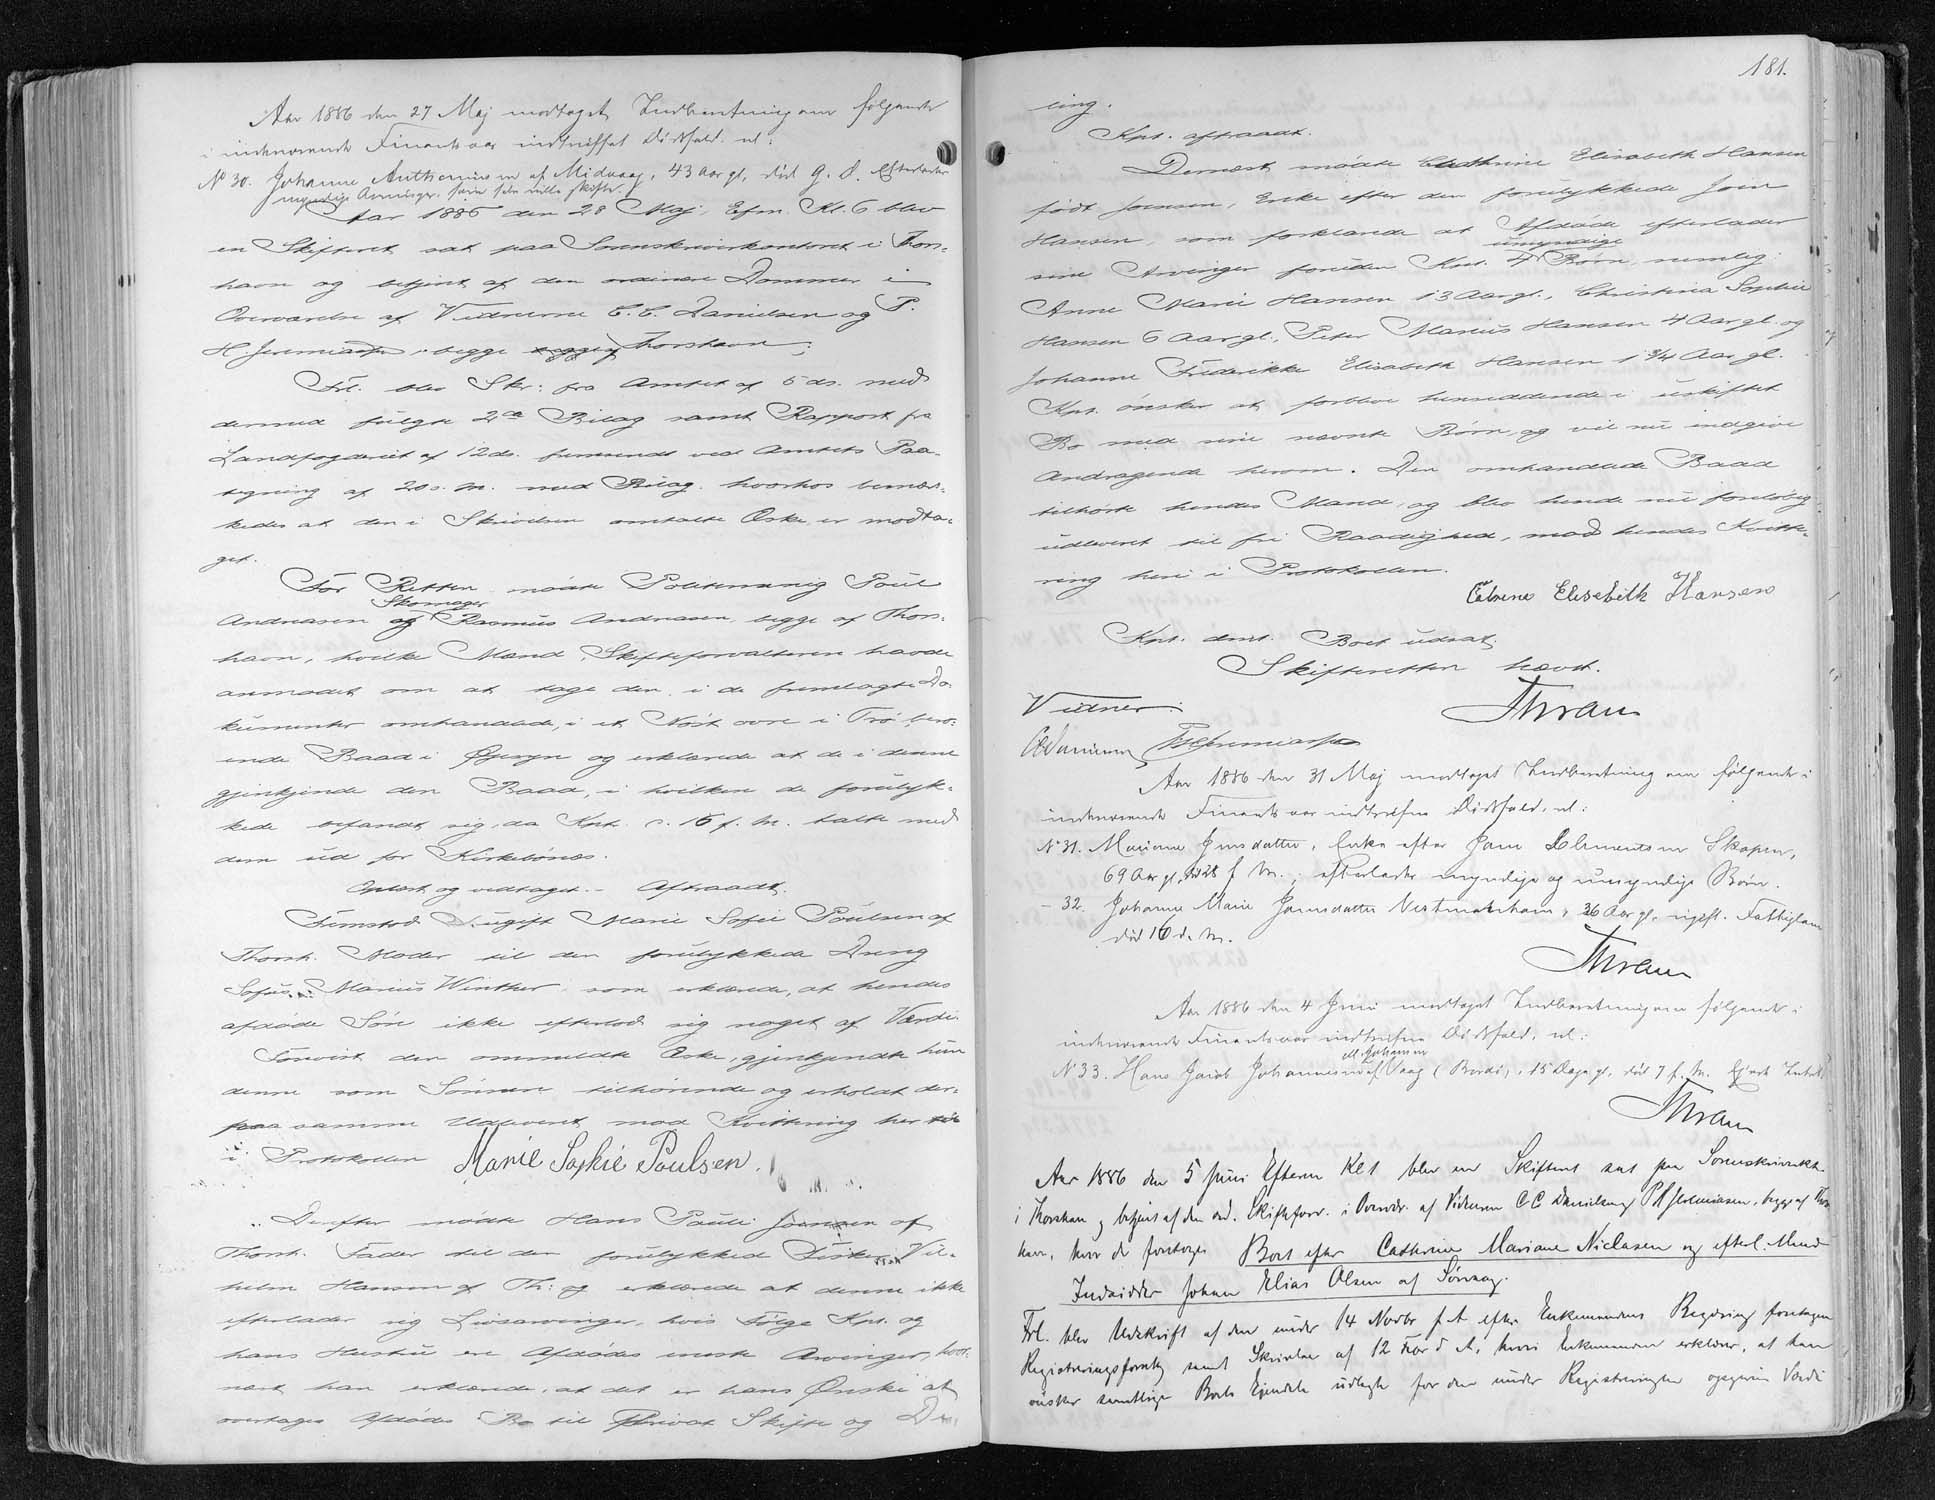 Aar 1886 den 27 Maj modtaget Indberetning om følgende
i indeværende Finantsaar indtruffet Dødsfald. nl:
No 30. Johanne Anthoniussen af Midvaag, 43 Aar gl, død 9. d. Efterlader
myndige Arvinger, som selv ville skifte.
Aar 1886 den 28 Maj, Efm. Kl. 6 blev
en Skifteret sat paa Sorenskriverkontoret i Thors-
havn og betjent af den ordinære Dommer i
Overværelse af Vidnerne C. C. Danielsen og P.
H. Jeremiassen, begge af Thorshavn:
Frl. blev Skr: fra Amtet af 5 ds. med
dermed fulgte 2de Bilag samt Rapport fra
Landfogderiet af 12 ds. fremsendt ved Amtets Paa-
tegning af 20 s. M. med Bilag, hvorhos bemær-
kedes at den i Skrivelsen omtalte Æske er modta-
get.
For Retten mødte Politimænd Poul
Andreasen og Skomager Rasmus Andreasen, begge af Thors-
havn, hvilke Mænd Skifteforvalteren havde
anmodet om at tage den i de fremlagte Do-
kumenter omhandlede, i et Nøst ovre i Trø bero-
ende Baad i Øjesyn og erklærede at de i denne
gjenkjende den Baad, i hvilken de forulyk-
kede befandt sig, da Kpt. d. 16 f. M. talte med
dem ud for Kirkebønæs.
Oplæst og vedtaget. - Aftraadt.
Fremstod ugift Marie Sofie Poulsen af
Thorsh. Moder til den forulykkede Dreng
Sofus Marius Winther som erklærede, at hendes
afdøde Søn ikke efterlod sig noget af Værdi.
Forevist den ommeldte Æske, gjenkjendte hun
denne som Sønnen tilhørende og erholdt der-
paa samme Udleveret mod Kvittering her
i Protokollen Marie Sophie Poulsen.
Derefter mødte Hans Pauli Joensen af
Thorsh. Fader til den forulykkede Fisker Vil-
helm Hansen af Th: og erklærede at denne ikke
efterlader sig Livsarvinger, hvis Følge Kpt. og
hans Hustru ere Afdødes eneste Arvinger, hvor-
næst han erklærede, at det er hans Ønske at
overtage Afdødes Bo til Privat Skifte og De-
181.
ling.
Kpt. aftraadt.
Dernæst mødte Cathrine Elisabeth Hansen
født Joensen, Enke efter den forulykkede Join
Hansen, som forklarede at Afdøde efterlader
sine Arvinger foruden Kpt. 4 umyndige Børn, nemlig:
Anne Marie Hansen 13 Aar gl., Christina Sophie
Hansen 6 Aar gl., Peter Marius Hansen 4 Aar gl. og
Johanne Frederikke Elisabeth Hansen 1 3/4 Aar gl.
Kpt. ønsker at forblive hensiddende i uskiftet
Bo med sine nævnte Børn, og vil nu indgive
Andragende herom. Den omhandlede Baad
tilhørte hendes Mand, og blev hende nu foreløbig
udleveret til fri Raadighed, mod hendes Kvitte-
ring heri i Protokollen.
Catrine Elisebith Hansen
Kpt. dmt. Boet udsat.
Skifteretten hævet.
Thran
Vidner:
CCDanielsen PHJeremiassen
Aar 1886 den 31 Maj modtaget Indberetning om følgende i
indeværende Finantsaar indtrufne Dødsfald, nl:
No 31. Mariane Jensdatter, Enke efter Joen Clementsen Skopen,
69 Aar gl, død 28 f. M., efterlader myndige og umyndige Børn.
- 32. Johanne Marie Joensdatter Vestmanhavn, 36 Aar gl, ugift. Fattiglem
død 16 d. M.
Thran
Aar 1886 den 4 Juni modtaget Indberetning om følgende i
indeværende Finantsaar indtrufne Dødsfald, nl:
No 33. Hans Jacob Johannesen af Vaag (Bordø), 15 Dage gl, død 7 f. M.
Thran
Aar 1886 den 5 Juni Efterm Kl 1 blev en Skifteret sat paa Sorenskriverkt.
i Thorshavn og betjent af den ord. Skifteforv. i Overvær. af Vidnerne C C Danielsen og P H Jeremiassen, begge af Thors
havn, hvor da foretoges Boet efter Cathrine Mariane Niclasen og efterl. Mand
Indsidder Johan Elias Olsen af Sørvaag.
Frl. blev Udskrift af den under 14 Novbr f. A. efter Enkemandens Begjæring foretagne
Registreringsforretg samt Skrivelse af 12 d. A., hvori Enkemanden erklærer, at han
ønsker samtlige Boets Ejendele udlagte for den under Registreringen opgivne Værdi